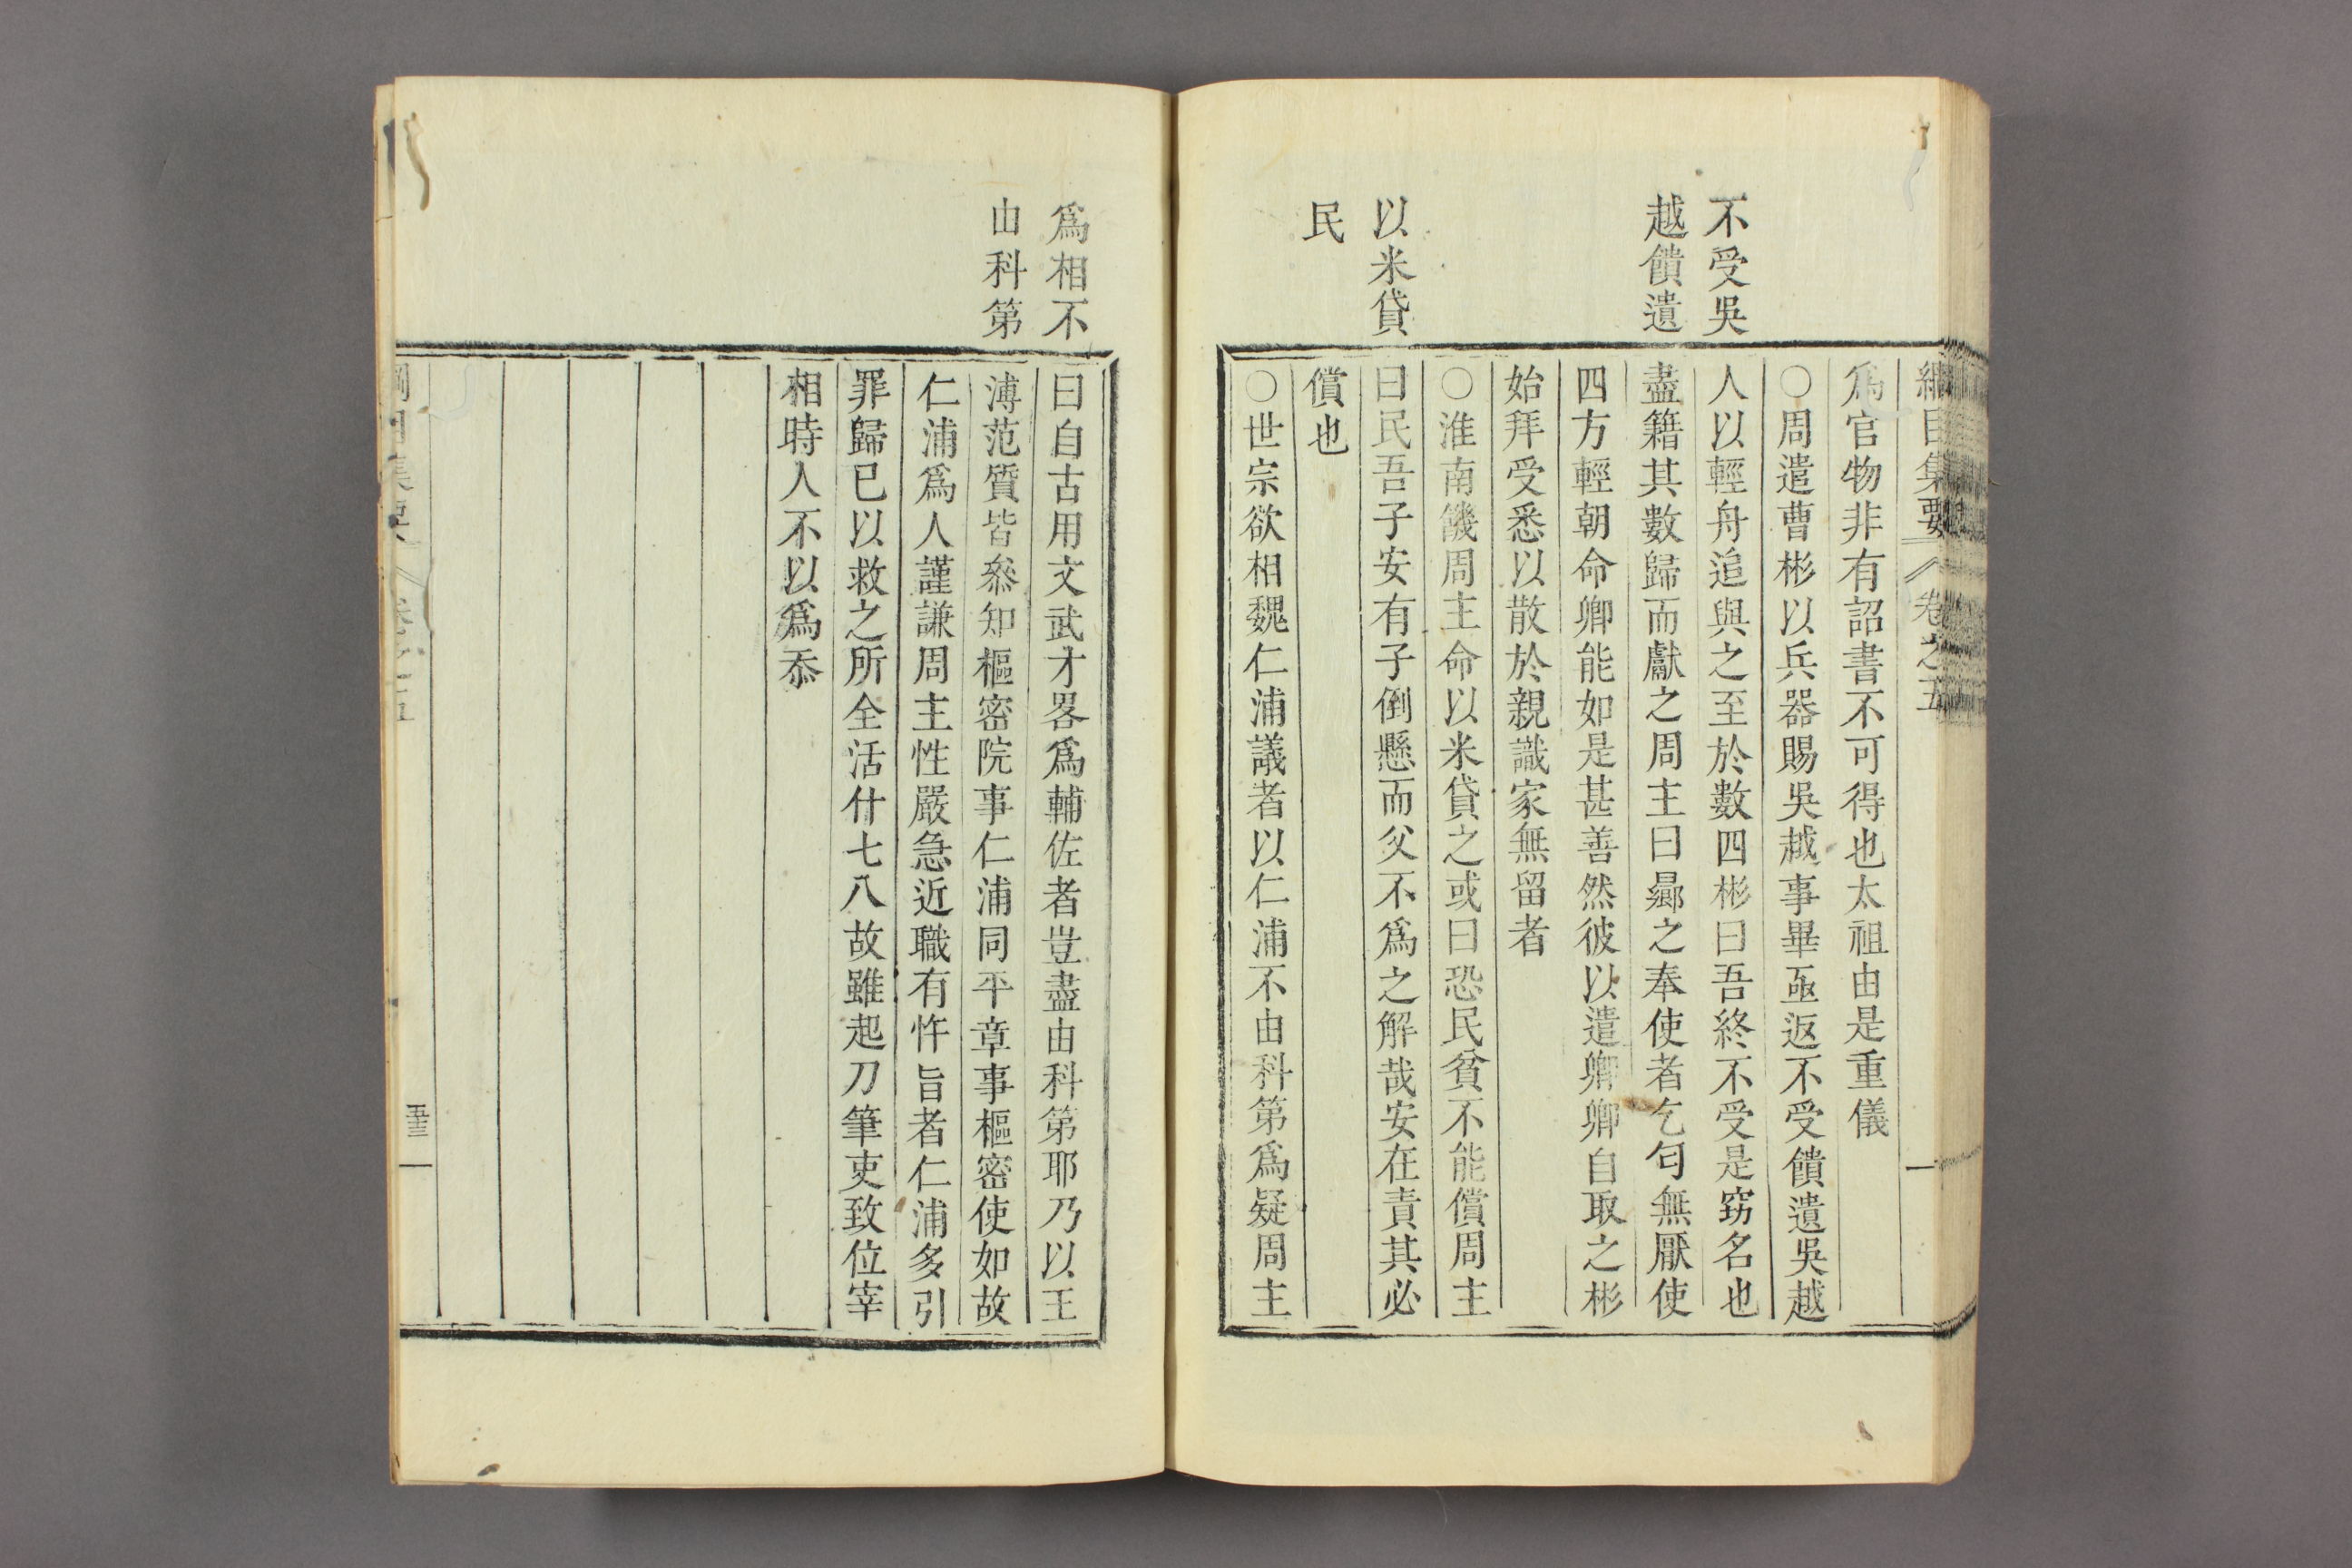 綱目集要 卷之五
不受吳
越饋遺
以米貸
民
爲官物非有詔書不可得也太祖由是重儀
○周遣曹彬以兵器賜吳越事畢亟返不受饋遺吳越
人以輕舟追與之至於數四彬曰吾終不受是窃名也
盡籍其數歸而獻之周主曰曏之奉使者乞匄無厭使
四方輕朝命卿能如是甚善然彼以遺卿卿自取之彬
始拜受悉以散於親識家無留者
○淮南饑周主命以米貸之或曰恐民貧不能償周主
曰民吾子安有子倒懸而父不爲之解哉安在責其必
償也
○世宗欲相魏仁浦議者以仁浦不由科第爲疑周主
爲相不
由科第
曰自古用文武才畧爲輔佐者豈盡由科第耶乃以王
溥范質皆叅知樞密院事仁浦同平章事樞密使如故
仁浦爲人謹謙周主性嚴急近職有忤旨者仁浦多引
罪歸已以救之所全活什七八故雖起刀筆吏致位宰
相時人不以爲忝